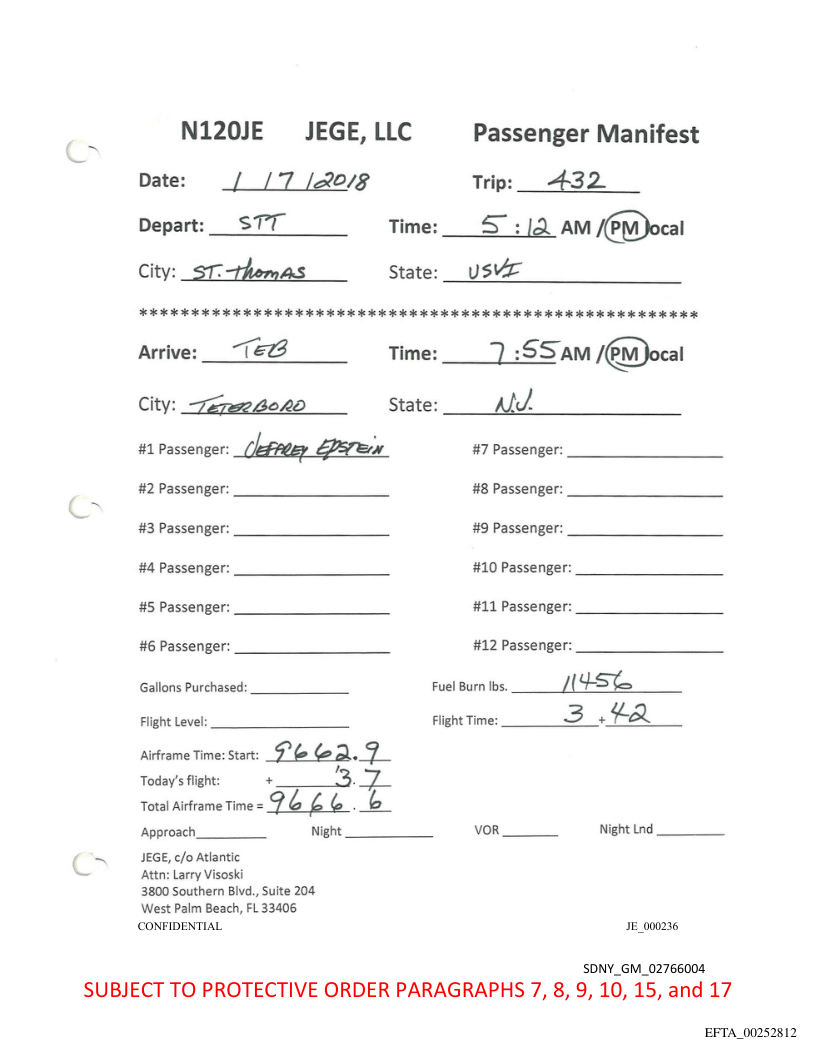 N120JE JEGE, LLC Passenger Manifest
Date: 1 / 7 / 2018 Trip: 432
Depart: STT Time: 5 : 12 AM / PM local
City: ST. Thomas State: USVI
*******************************************************
Arrive: TEB Time: 7 : 55 AM / PM local
City: TETERBORO State: N.J.
#1 Passenger: JEFFREY EPSTEIN #7 Passenger:
#2 Passenger: #8 Passenger:
#3 Passenger: #9 Passenger:
#4 Passenger: #10 Passenger:
#5 Passenger: #11 Passenger:
#6 Passenger: #12 Passenger:
Gallons Purchased: Fuel Burn lbs. 11456
Flight Level: Flight Time: 3 + 42
Airframe Time: Start: 9662.9
Today's flight: + 3.7
Total Airframe Time = 9666.6
Approach Night VOR Night Lnd
JEGE, c/o Atlantic
Attn: Larry Visoski
3800 Southern Blvd., Suite 204
West Palm Beach, FL 33406
CONFIDENTIAL JE_000236
SDNY_GM_02766004
SUBJECT TO PROTECTIVE ORDER PARAGRAPHS 7, 8, 9, 10, 15, and 17
EFTA_00252812